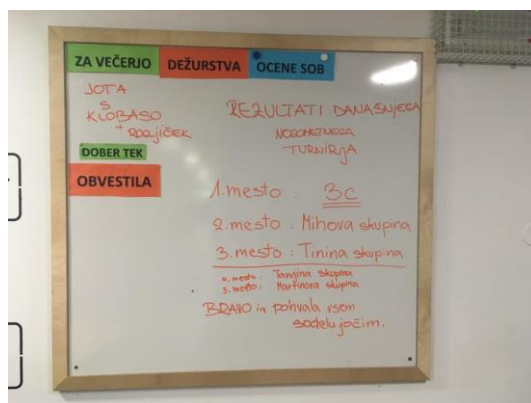 ZA VEČERJO
DEŽURSTVA
OCENE SOB
JOTA
S
KLOBASO
+ ROGLJIČEK
DOBER TEK
OBVESTILA
REZULTATI DANAŠNJEGA
NOGOMETNEGA
TURNIRJA
1. mesto : 3c
2. mesto : Mihova skupina
3. mesto : Tinina skupina
4. mesto : Tanjina skupina
5. mesto : Martinova skupina
BRAVO in pohvala vsem
sodelujočim.